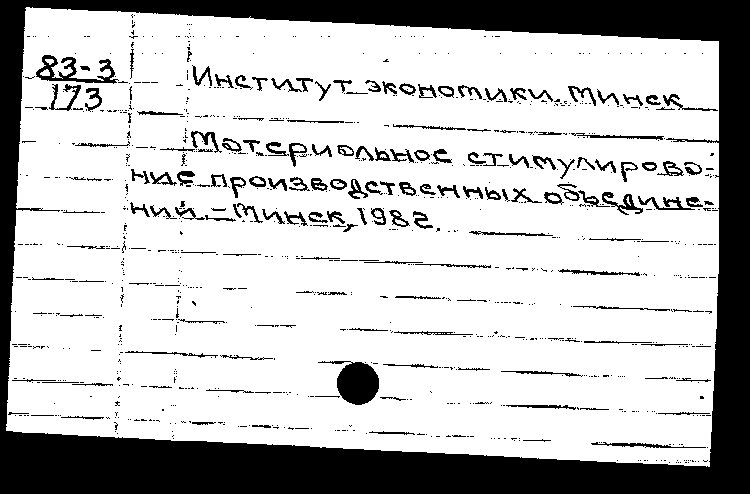 83-3
173
Институт экономики. Минск
Материальное стимулирова-
ние производственных объедине-
ний. - Минск, 1982.